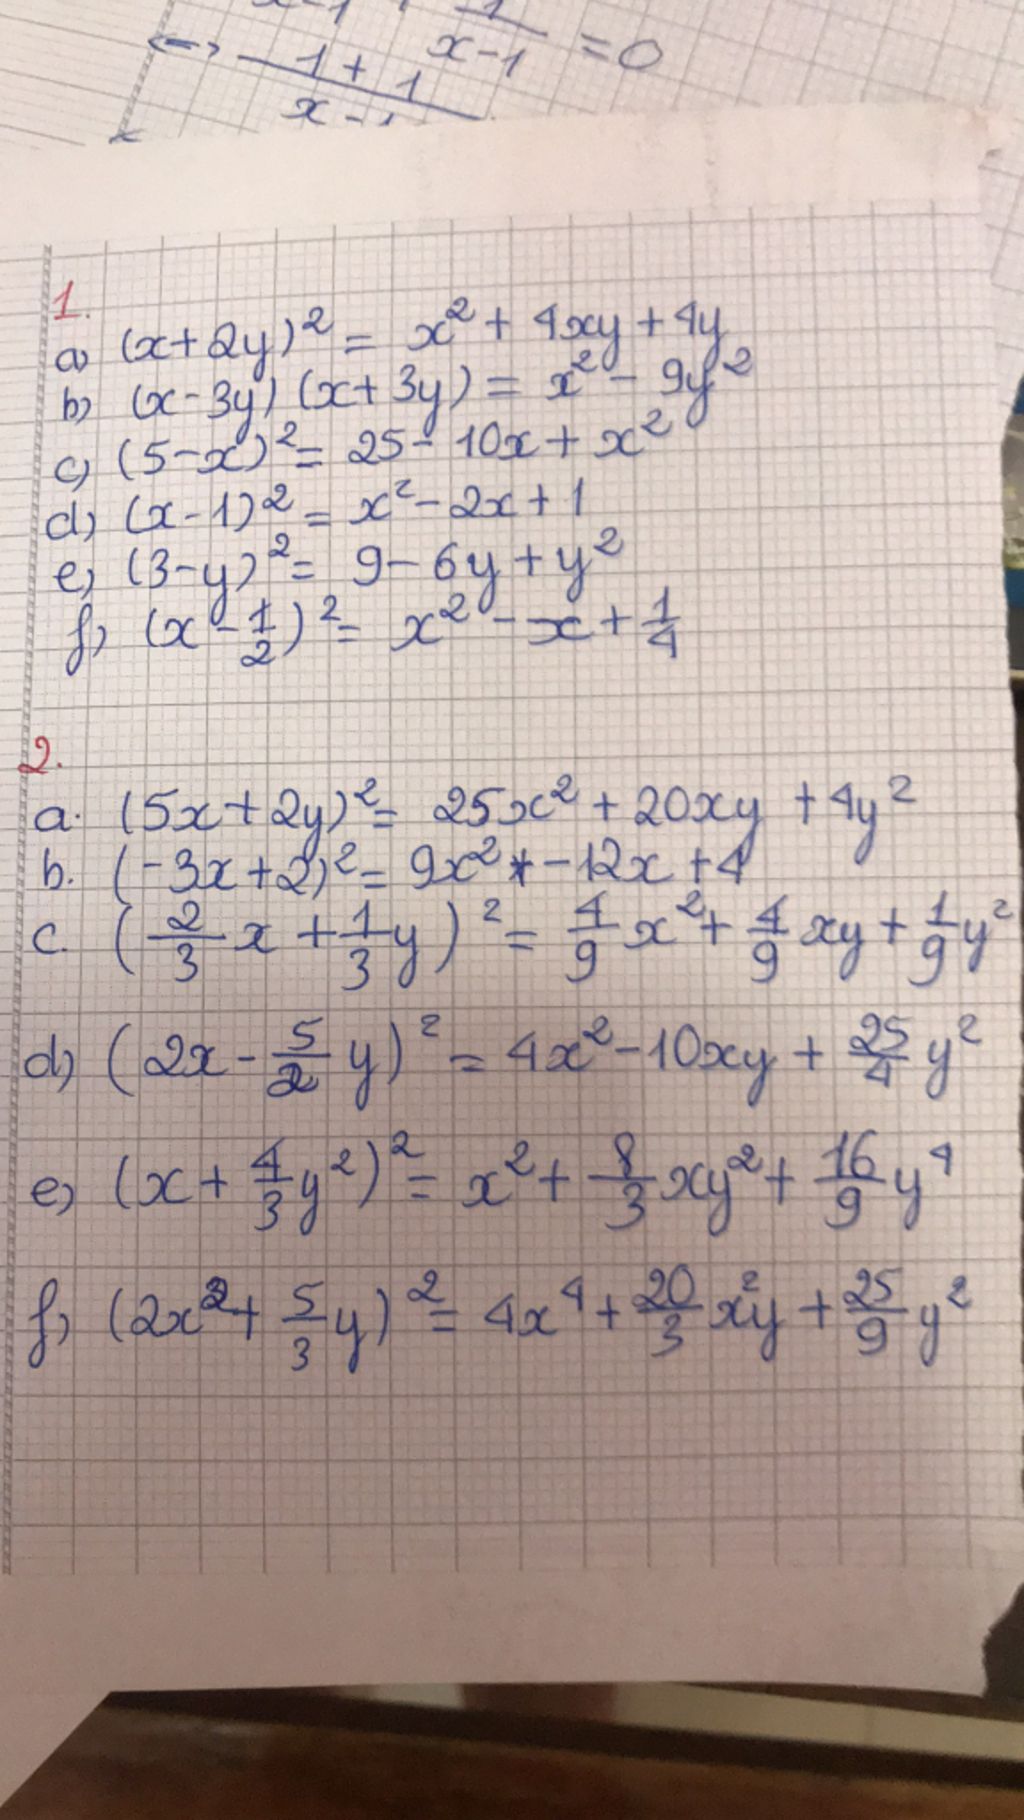 x-1
1
x-1
=0
<-> 1+1
x-1
1.
a) (x+2y)² = x² + 4xy + 4y
b) (x-3y) (x+3y) = x² - 9y²
c) (5-x)² = 25 - 10x + x²
d) (x-1)² = x² - 2x + 1
e) (3-y)² = 9 - 6y + y²
f) (x - 1/2)² = x² - x + 1/4
2.
a. (5x+2y)² = 25x² + 20xy + 4y²
b. (-3x+2)² = 9x² - 12x + 4
c. (2/3 x + 1/3 y)² = 4/9 x² + 4/9 xy + 1/9 y²
d) (2x - 5/2 y)² = 4x² - 10xy + 25/4 y²
e) (x + 4/3 y²)² = x² + 8/3 xy² + 16/9 y⁴
f) (2x² + 5/3 y)² = 4x⁴ + 20/3 x²y + 25/9 y²